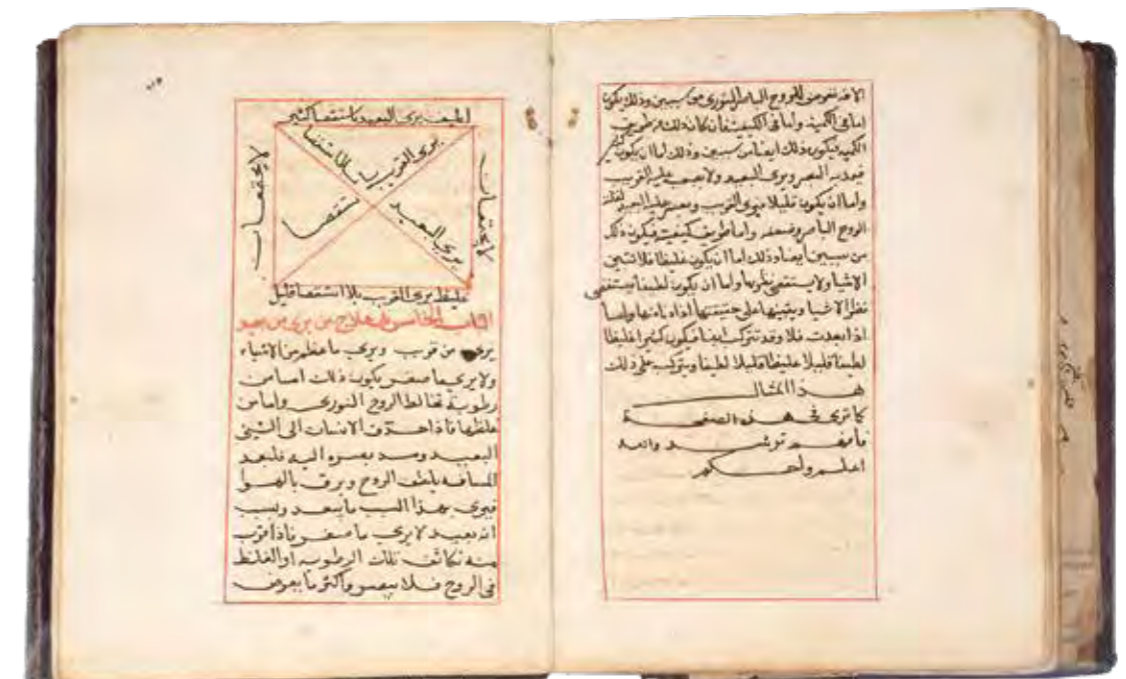 الافة تعرض للروح الباصر النوري من سببين وذلك يكون
اما في الكمية واما في الكيفية فان كان ذلك من طريق
الكمية فيكون ذلك ايضا من سببين وذلك اما ان يكون كثير
البصر ويرى البعيد ولا يصعب عليه القريب
واما ان يكون قليلا فيرى القريب ويعسر عليه البعيد لقلة
الروح الباصر وضعفه واما طريق كيفيته فيكون ذلك
من سببين ايضا وذلك اما ان يكون غليظا فلا تتبين
الاشيا ولا يستقصي نظرها واما ان يكون لطيفا يستقصي
نظر الاشيا ويتبينها على حقيقتها اذا دنا منها واما
اذا بعدت فلا وقد تتركب ايضا فيكون كثيرا غليظا
لطيفا قليلا غليظا قليلا لطيفا ويتركب على ذلك
هذا المثال
كما ترى في هذه الصفحة
فافهم ترشد والله
اعلم واحكم
لطيف يرى البعيد باستقصا كثير
لا يجتمعان
يرى القريب
بلا استقصا
يرى البعيد
باستقصا
لا يجتمعان
غليظ يرى القريب بلا استقصا قليل
الباب الخامس في علاج من يرى من بعيد
يرى من قريب ويرى ما عظم من الاشياء
ولا يرى ما صغر يكون ذلك اما من
رطوبة تخالط الروح النوري واما من
غلظها فاذا حدق الانسان الى الشيئ
البعيد ومد بصره اليه فلبعد
المسافة يلطف الروح ويرق بالهوا
فيرى بهذا السبب ما يبعد وسبب
انه بعيد لا يرى ما صغر فاذا قرب
منه تكاثف تلك الرطوبه او الغلظ
في الروح فلا يبصر واكثر ما يعرض